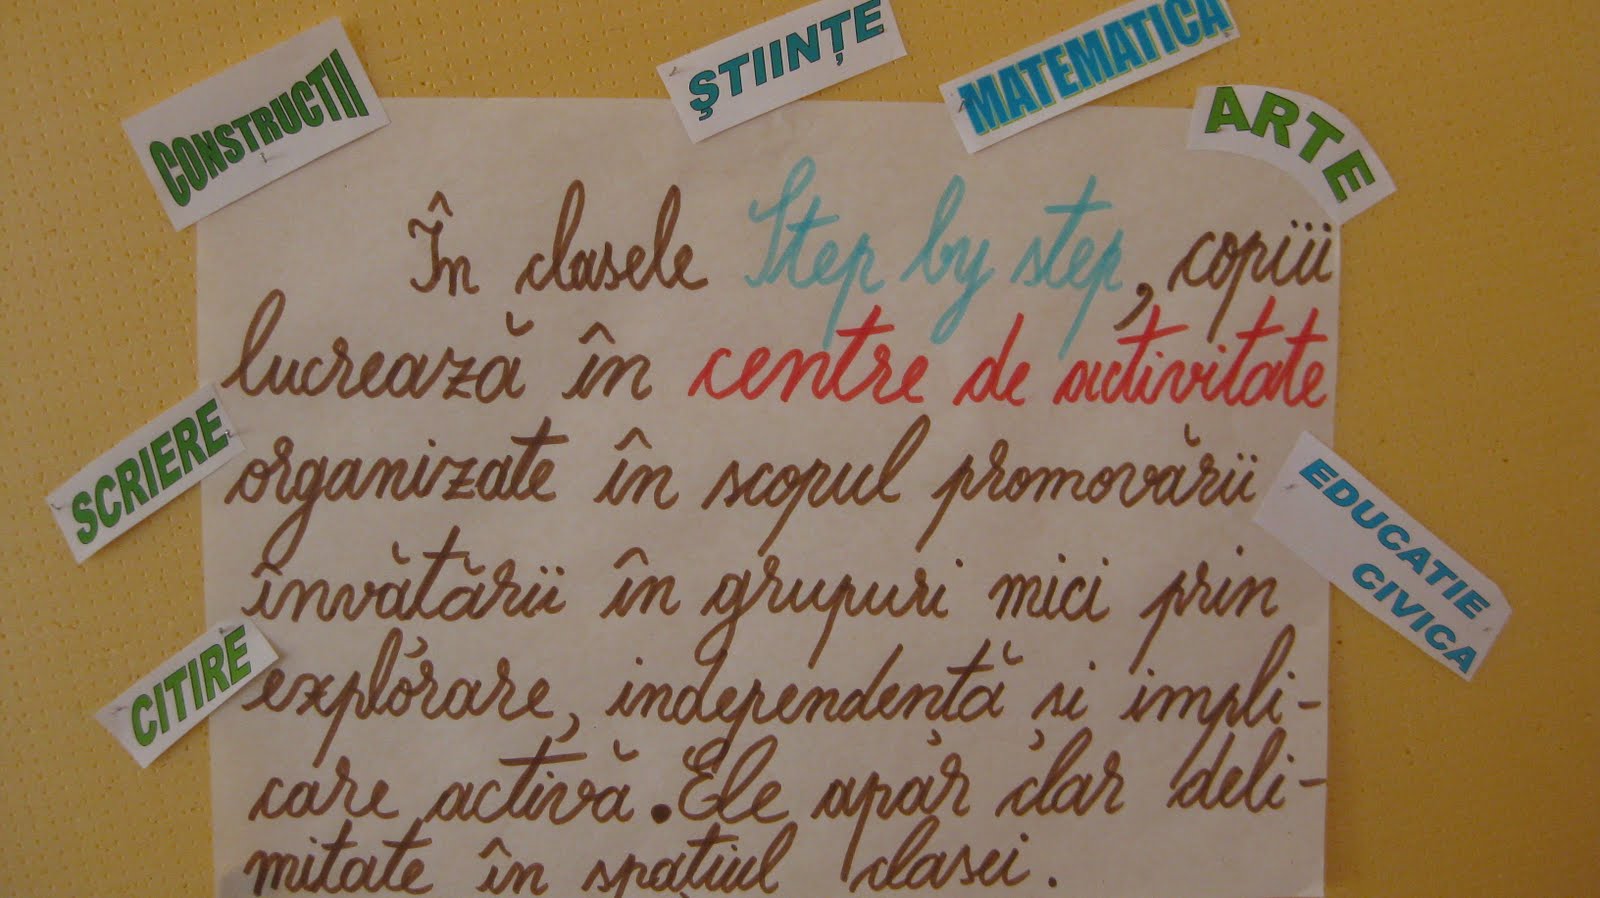 CONSTRUCTII
ŞTIINŢE
MATEMATICA
ARTE
În clasele Step by step, copiii
lucrează în centre de activitate
SCRIERE
organizate în scopul promovării
EDUCATIE
CIVICA
învătării în grupuri mici prin
CITIRE
explorare, independentă si impli-
care activă. Ele apar clar deli-
mitate în spațiul clasei.